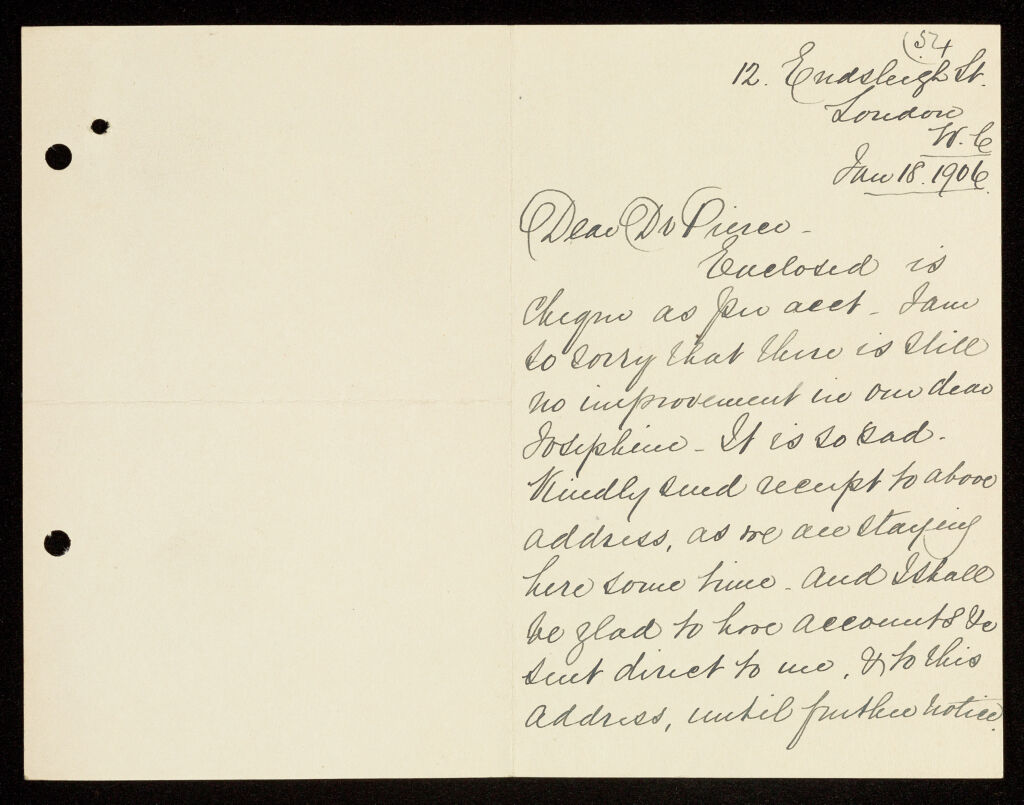 (54
12. Endsleigh St.
London
W.C
Jan 18. 1906.
Dear Dr Pierce -
Enclosed is
cheque as per acct - I am
so sorry that there is still
no improvement in our dear
Josephine - It is so sad.
Kindly send receipt to above
address, as we are staying
here some time - and I shall
be glad to have accounts &c
sent direct to me, & to this
address, until further notice.